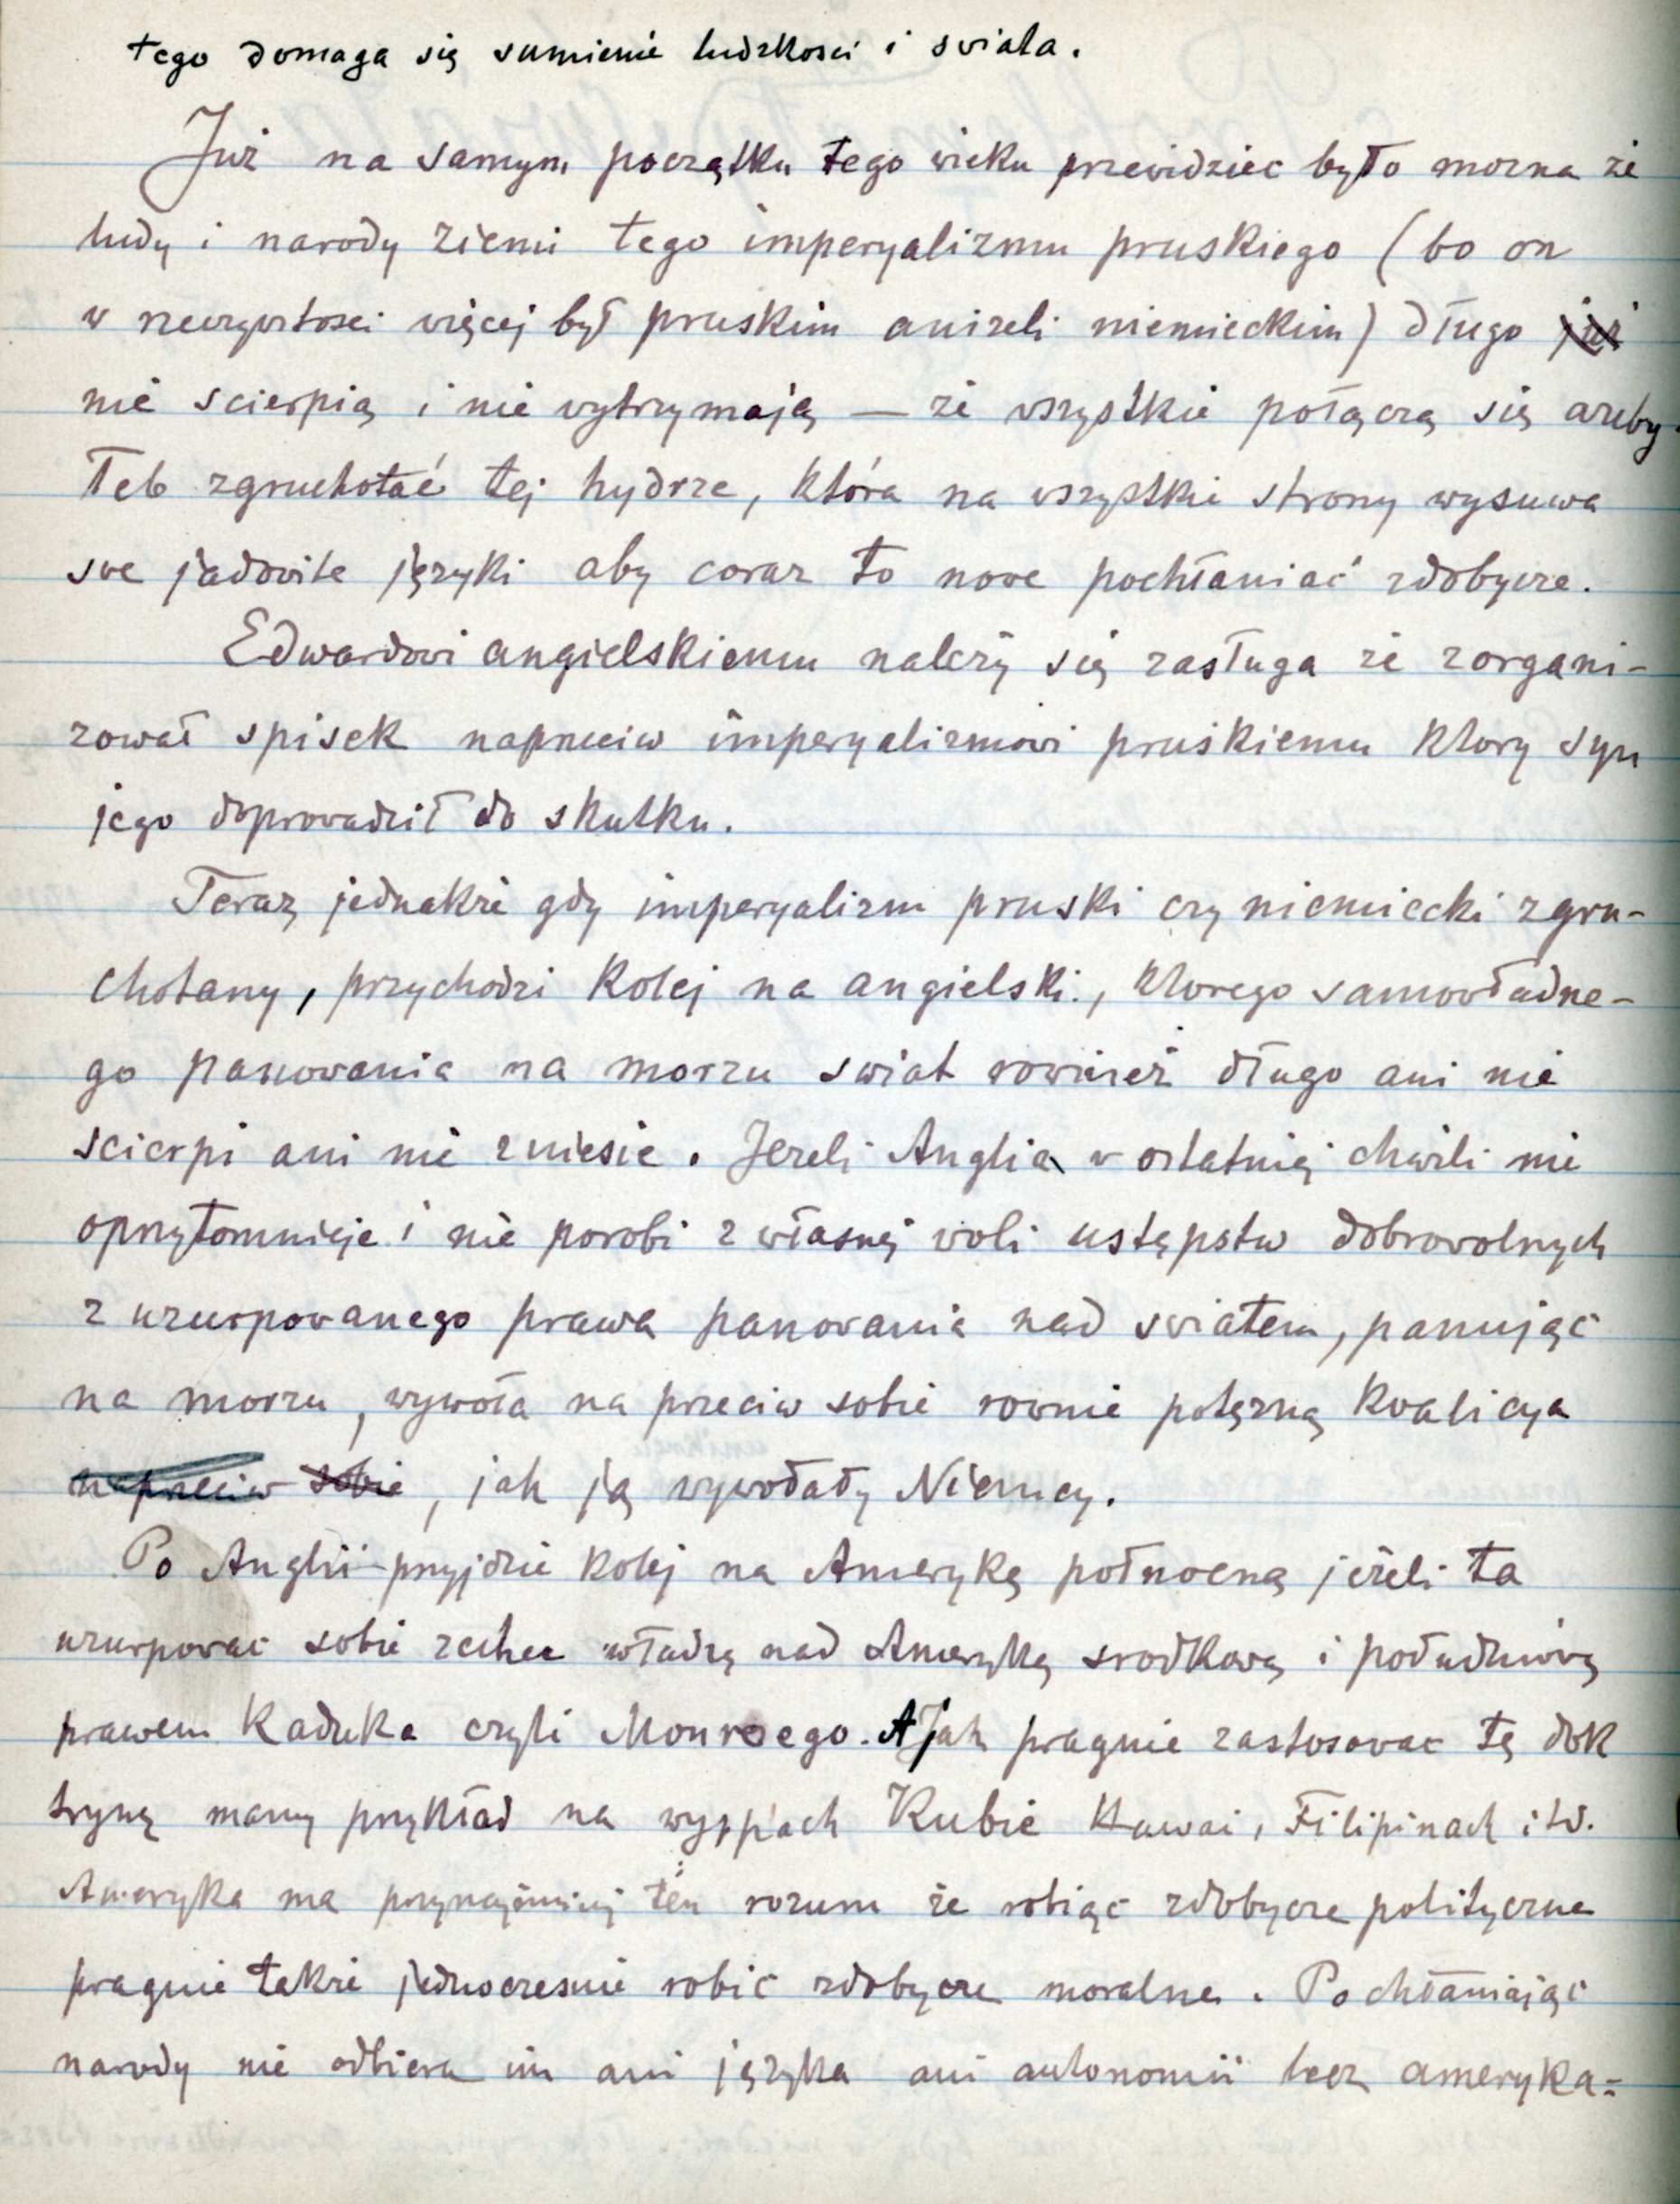 tego domaga się sumienie ludzkosci i swiata.
Już na samym początku tego wieku przewidziec było mozna że
ludy i narody ziemi tego imperyalizmu pruskiego (bo on
w rzeczywistosci więcej był pruskim anizeli niemieckim) długo już
nie scierpią i nie wytrzymają — że wszystkie połączą się azeby
łeb zgruchotać tej hydrze, która na wszystkie strony wysuwa
swe jadowite języki aby coraz to nowe pochłaniać zdobycze.
Edwardowi angielskiemu należy się zasługa że zorgani-
zował spisek naprzeciw imperyalizmowi pruskiemu ktory syn
jego doprowadził do skutku.
Teraz jednakże gdy imperyalizm pruski czy niemiecki zgru-
chotany, przychodzi kolej na angielski, ktorego samowładne-
go panowania na morzu swiat rownież długo ani nie
scierpi ani nie zniesie. Jezeli Anglia w ostatniej chwili nie
oprzytomnieje i nie porobi z własnej woli ustępstw dobrowolnych
z uzurpowanego prawa panowania nad swiatem, panując
na morzu, wywoła na przeciw sobie rownie potęzną koalicya
naprzeciw sobie, jak ją wywołały Niemcy.
Po Anglii przyjdzie kolej na Amerykę połnocną jeżeli ta
uzurpowac sobie zechce władzę nad Ameryką srodkową i południową
prawem Kaduka czyli Monroego. A Jak pragnie zastosowac tę dok
trynę mamy przykład na wyspach Kubie Hawai, Filipinach itd.
Ameryka ma przynajmniej ten rozum że robiąc zdobycze polityczne
pragnie także jednoczesnie robić zdobycze moralne. Pochłaniając
narody nie odbiera im ani języka ani autonomii lecz ameryka=